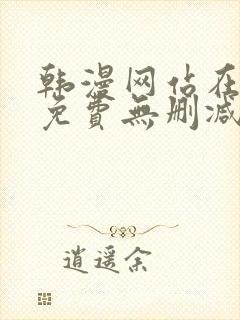 韩漫网站在
免費無删减
逍遥余